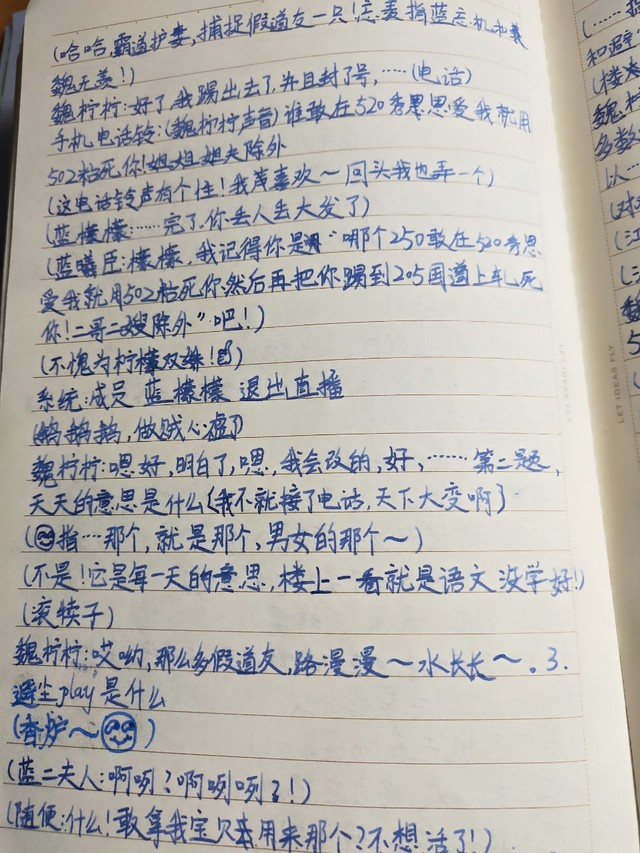 (哈哈,霸道护妻,捕捉假道友一只!注:妻指蓝忘机和妻
魏无羡!)
魏柠柠:好了,我踢出去了,并且封了号,……(电话)
手机电话铃:(魏柠柠声音)谁敢在520秀恩思爱我就用
502粘死你!姐姐姐夫除外
(这电话铃声有个性!我喜欢~回头我也弄一个)
(蓝檬檬:……完了,你丢人丢大发了)
(蓝曦臣:檬檬,我记得你是“哪个250敢在520秀恩
爱我就用502粘死你然后再把你踢到205国道上轧死
你!二哥二嫂除外”吧!)
(不愧为柠檬双姝!)
系统:成员 蓝檬檬 退出直播
(鹅鹅鹅,做贼心虚了)
魏柠柠:嗯好,明白了,嗯,我会改的,好,……第二题,
天天的意思是什么{我不就接了电话,天下大变啊}
(指…那个,就是那个,男女的那个~)
(不是!它是每一天的意思,楼上一看就是语文没学好!)
(滚犊子)
魏柠柠:哎呦,那么多假道友,路漫漫~水长长~。3.
避尘play是什么
(香炉~)
(蓝二夫人:啊咧?啊咧咧了!)
(随便:什么!敢拿我宝贝来用来那个?不想活了!)
(……指
和避
(楼
魏柠
多数
以…
(江
LET IDEAS FLY